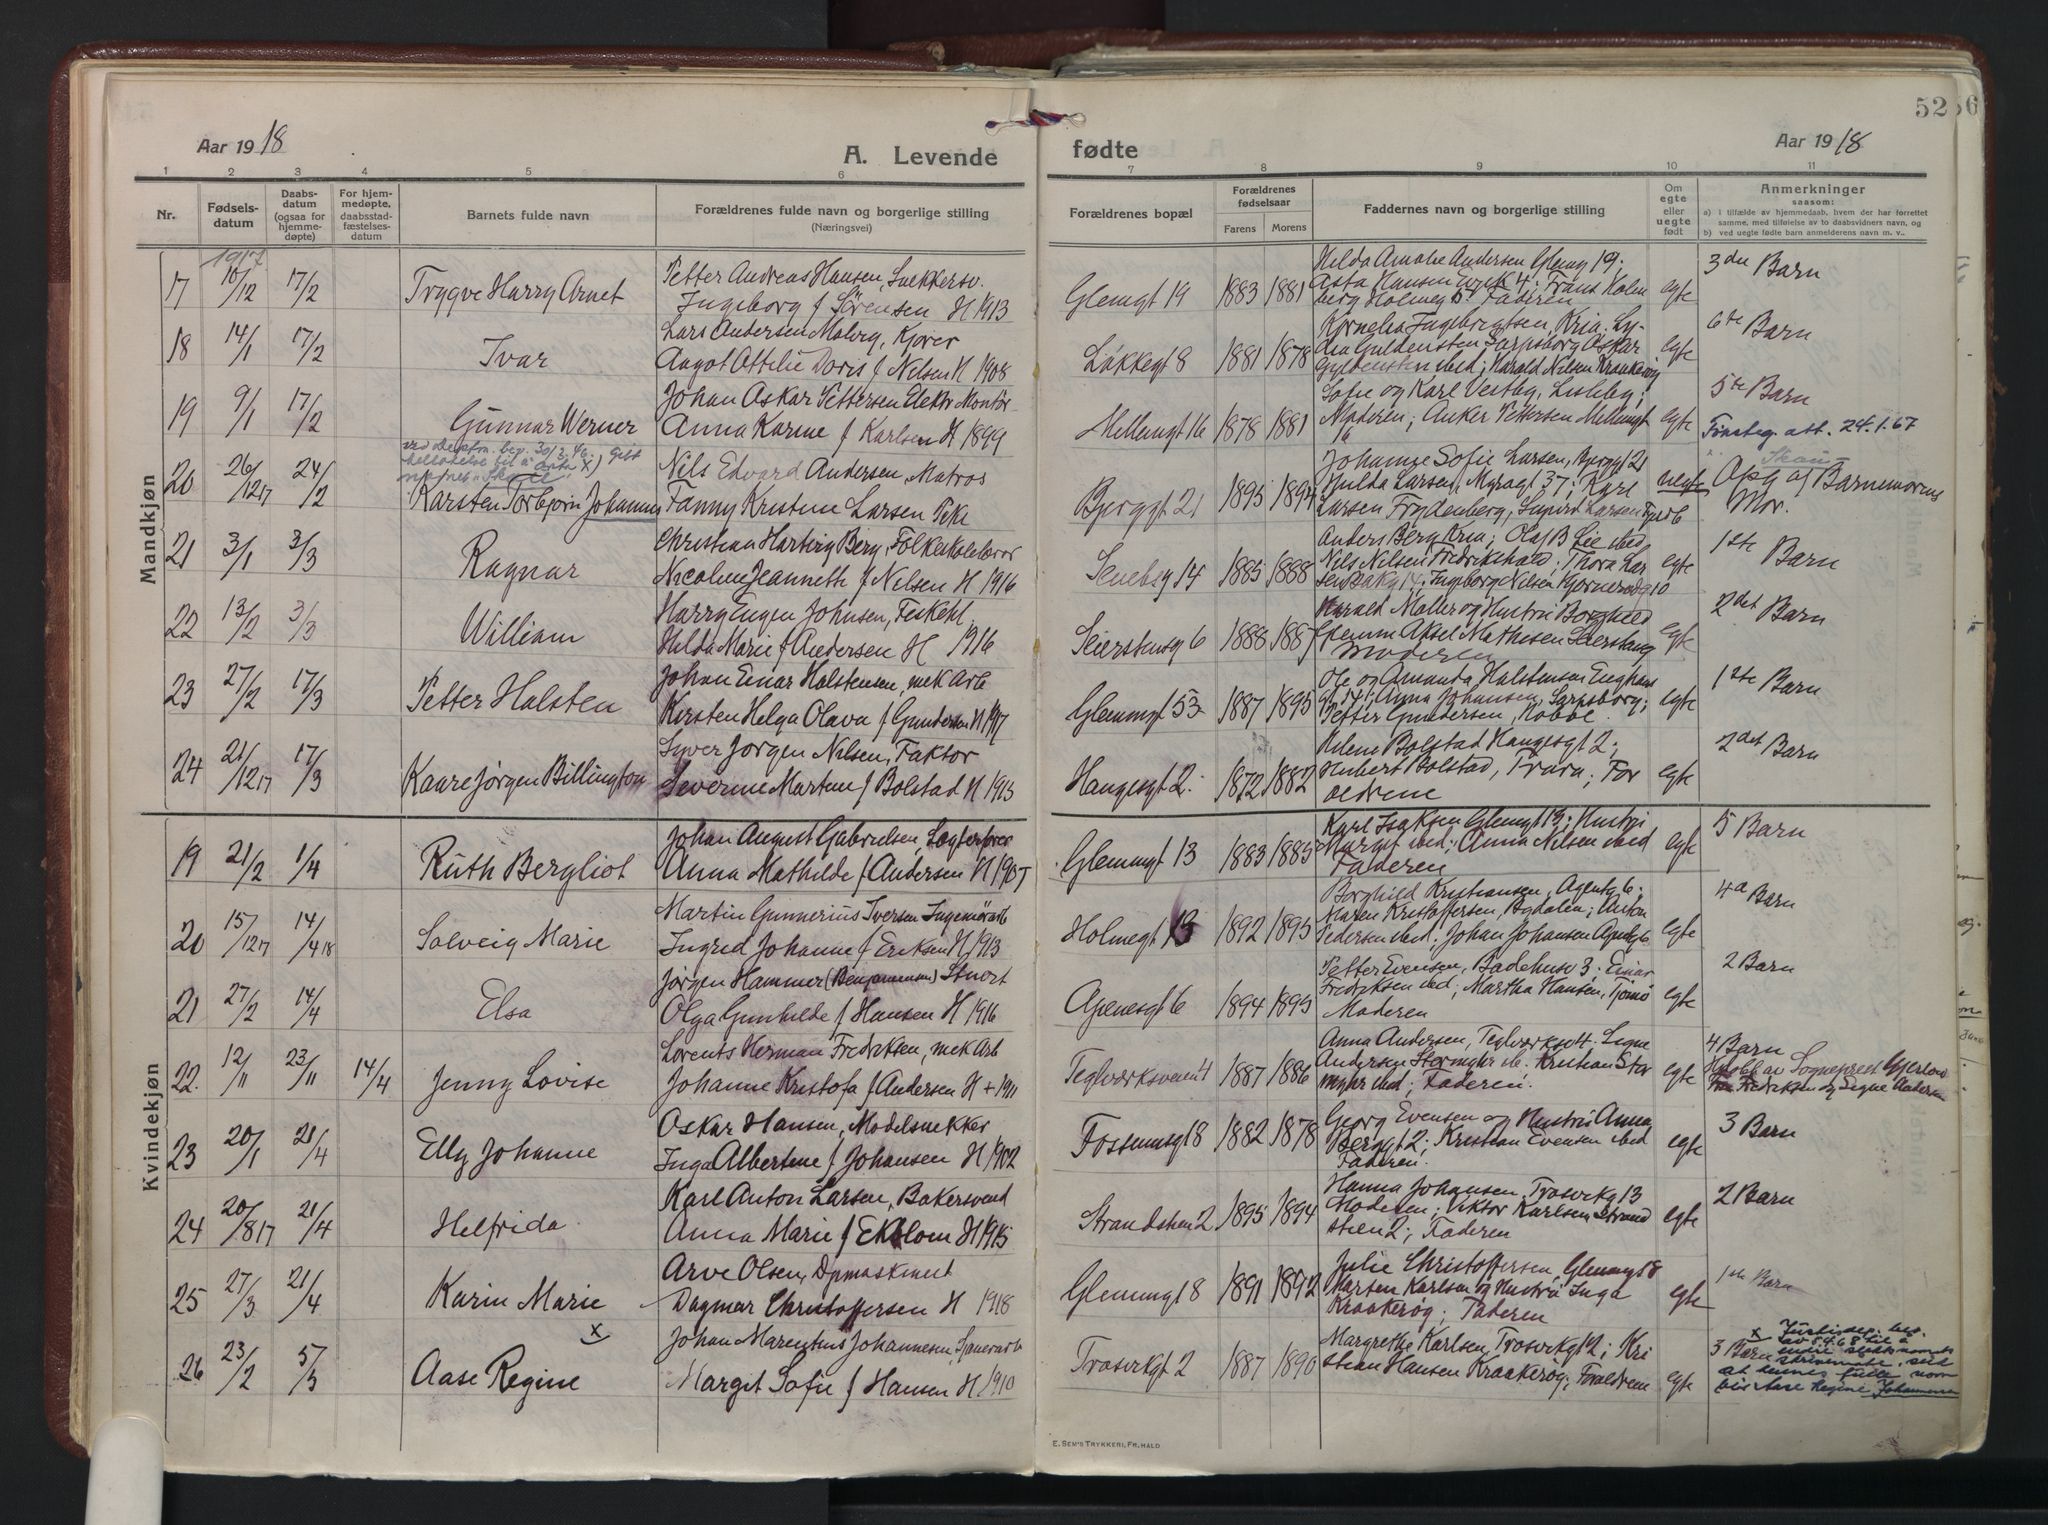 Aar 1918
A. Levende
fødte
Aar 1918
52
56
1 2 3 4 5 6 7 8 9 10 11
Nr.
Fødsels-
datum
Daabs-
datum
(ogsaa for
hjemme-
døpte)
For hjem-
medøpte,
daabsstad-
fæstelses-
datum
Barnets fulde navn
Forældrenes fulde navn og borgerlige stilling
(Næringsvei)
Forældrenes bopæl
Forældrenes
fødselsaar
Farens Morens
Faddernes navn og borgerlige stilling
Om
egte
eller
uegte
født
Anmerkninger
saasom:
a) i tilfælde av hjemmedaab, hvem der har forrettet
samme, med tilføielse av to daabsvidners navn, og
b) ved uegte fødte barn anmelderens navn m. v..
Mandkjøn
1917
17 10/12 17/2 Trygve Harry Arnet
Petter Andreas Hansen, Snekkersv.
Ingeborg f Sörensen H 1913
Glemgt 19 1883 1881
Hilda Amalie Andersen Glemg 19;
Faderen
egte 3die Barn
18 14/1 17/2 Ivar
Lars Andersen Malvig, Kjører
Aagot Ottilie Doris f Nilsen H 1908
Løkkegt 8 1881 1878
Kornelia Ingebrigtsen, Kria. Ly-
dia Guldensten Sarpsborg Oskar
Gyldensten ibid; Harald Nilsen Kraakerøy
egte 6te Barn
19 9/1 17/2 Gunnar Werner
Johan Oskar Pettersen Elektr Montör
Anna Karine f Karlsen H 1899
Mellemgt 16 1878 1881
Sofie og Karl Vestby, Lisleby;
Moderen; Anker Pettersen Mellemgt
16
egte 5te Barn
att. 24.1.67
20 26/12 17 24/2 Karsten Torbjørn Johannes
Nils Edvard Andersen, Matros
Fanny Kristine Larsen Pike
Bjerggt 21 1895 1894
Johanne Sofie Larsen, Bjerggt 21
Hulda Larsen, Myragt 37; Karl
Larsen Frydenberg,
uegte Opg af Barnemorens
Mor.
21 3/1 3/3 Ragnar
Christian Hartvig Berg, Folkeskolelærer
Nicoline Jeannette f Nilsen H 1916
1885 1888
Anders Berg Kria; Olaf B Lie ibid
Nils Nilsen Fredrikshald; Thora Lar
egte 1ste Barn
22 13/2 3/3 William
Harry Eugen Johnsen, Feskehl.
Hilda Marie f Andersen H 1916
Seierstensg 6 1888 1887
Harald Moller og Hustru Borghild
Moderen
egte 2det Barn
23 27/2 17/3 Petter Halsten
Johan Einar Halstensen, mek Arb
Kirsten Helga Olava f Gundersen H 1917
Glemmgt 53 1887 1895
Ole og Amanda Halstensen Enghaus
gt 54; Anna Johansen, Sarpsborg;
Petter Gundersen, Kobbe.
egte 1ste Barn
24 21/12 17 17/3 Kaare Jørgen Billington
Syver Jørgen Nilsen, Faktor
Severine Martine f Bolstad H 1915
Haugesgt 2. 1872 1882
Helene Bolstad Haugesgt 2;
Hubert Bolstad, Trara; For
ældrene
egte 2det Barn
Kvindekjøn
19 21/2 1/4 Ruth Bergliot
Johan August Gabrielsen Lagterfører
Anna Mathilde f Andersen H 1905
Glemmgt 13 1883 1885
Karl Isaksen Glemgt 13; Hustru
Margit ibid; Anna Nilsen ibid
Faderen
egte 5 Barn
20 15/12 17 14/4 18 Solveig Marie
Martin Gunnerius Iversen Ingeniørarb
Ingrid Johanne f Eriksen H 1913
Holmegt 13 1892 1895
Borghild Kristiansen, Agentg 6;
Maren Kristoffersen, Bydalen; Anton
Pedersen ibid; Johan Johansen Agentg 6
egte 4a Barn
21 27/2 14/4 Elsa
Jørgen Hammer (Benjaminsen) Stuert
Olga Gunhilde f Hansen H 1916
Agenesgt 6 1894 1895
Petter Evensen, Badehusg 3; Einar
Fredriksen ibid; Martha Hansen, Tjömö
Moderen
egte 2 Barn
22. 12/11 23/11 14/4 Jenny Lovise
Lorents Herman Fredriksen, mek Arb
Johanne Kristofa f Andersen H + 1911
Teglverksveien 4 1887 1886
Anna Andersen, Teglverksv 4. Signe
Andersen Stormyhr ib. Kristian Stor
myhr ibid; Faderen.
egte 4 Barn
Hdøbt av Sogneprest Gjerløw
Fredriksen og Signe Andersen
23 20/1 21/4 Elly Johanne
Oskar Hansen, Modelsnekker
Inga Albertine f Johansen H 1902
Fossumsg 18 1882 1878
Georg Evensen og Hustru Anna
Berggt 2; Kristian Evensen ibid
Faderen.
egte 3 Barn
24 20/8 17 21/4 Helfrida
Karl Anton Larsen, Bakersvend
Anna Marie f Ekblom H 1915
Strandstien 2 1895 1894
Hanna Johansen, Trosvikg 13
Moderen; Viktor Karlsen Strand
stien 2; Faderen
egte 2 Barn
25 27/3 21/4 Karin Marie
Arve Olsen, Dpmaskinist
Dagmar Christoffersen H 1918
Glemmgt 8 1891 1892
Julie Christoffersen, Glemmgt 8
Marten Karlsen og Hustru Inga
Kraakerøg; Faderen
egte 1ste Barn
26 23/2 5/3 Aase Regine x
Johan Marentius Johannesen,
Margit Sofie f Hansen H 1910
Trosvikgt 2 1887 1890
Margrethe Karlsen, Trosvikgt 2; Kri
stian Hansen Kraakerøg; Forældrene
egte 3 Barn
x Justisdep. bev.
av 5.4.68 til å
endre slektsnavnets
skrivemåte, slik
at hennes fulle navn
blir Aase Regine Johannessen
E. SEM'S TRYKKERI, FR.HALD